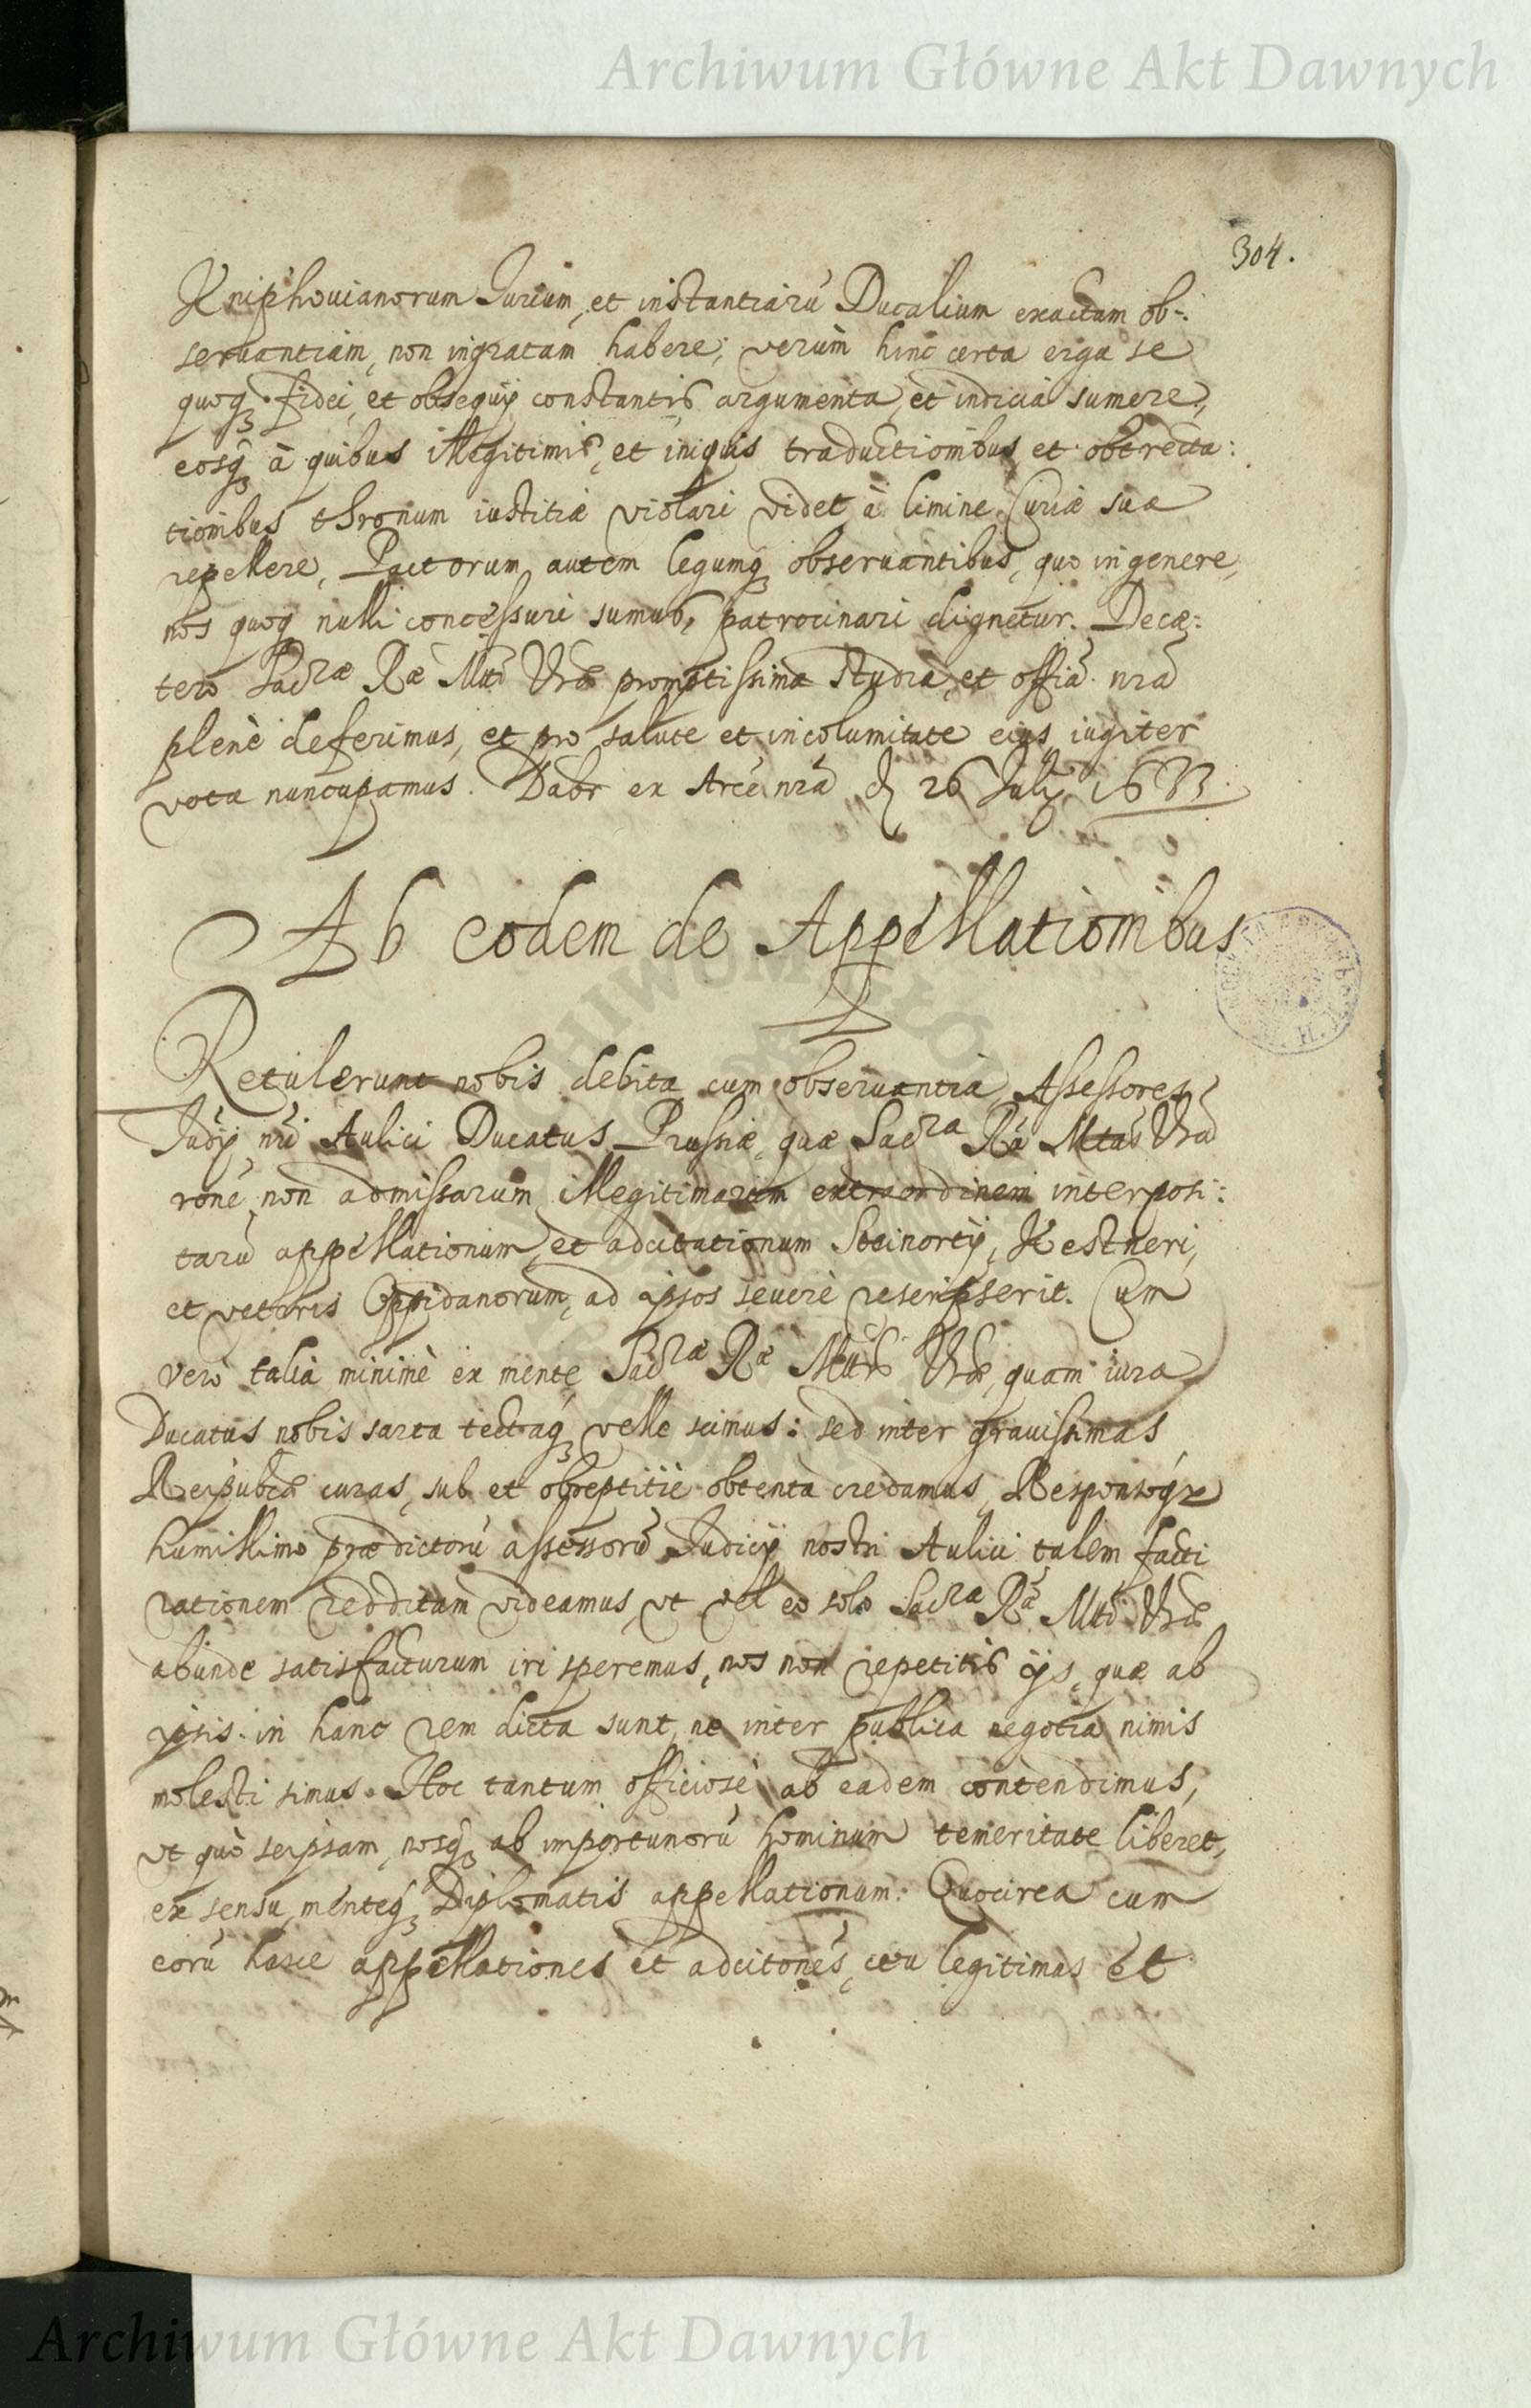 Archiwum Główne Akt Dawnych
304.
Kniphouianorum Jurium, et instantiarũ Ducalium exactam ob-
seruantiam, non ingratam habere; verùm hinc certa erga se
quoq; fidei, et obsequij constantis argumenta, et indicia sumere,
eosq; à quibus illegitimis, et iniquis traductionibus et obtrecta:
tionibus thronum iustitiæ violari videt à limine Curiæ suæ
repellere, Pactorum autem legumq; obseruantibus, quo in genere,
nos quoq; nulli concessuri sumus, patrocinari dignetur. Decæ:
tero Sacræ Ræ Mtti Vræ promptissima studia, et offia nra
plenè deferimus, et pro salute et incolumitate eius iugiter
vota nuncupamus. Dabr ex Arce nrã d 26 Julij 1633.
Ab eodem de Appellationibus
Retulerunt nobis debita cum obseruantia, Assessores
Judij nri Aulici Ducatus Prussiæ, quæ Sacra Ra Mtas Vra
rone non admissarum illegitimarum extraordinem interposi:
tarũ appellationum, et adcitationum Steinortij, Kestneri,
et veteris Oppidanorum, ad ipsos seuerè rescripserit. Cum
verò talia minimè ex mente Sacræ Ræ Mttis Vræ, quam iura
Ducatus nobis sarta tectaq; velle scimus: sed inter grauissimas
Reipubcæ curas, sub et obreptitiè obtenta credamus, Responsoq;
humillimo prædictorũ assessorũ Judicij nostri Aulici talem facti
rationem redditam videamus, vt vel eo solo Sacræ Ræ Mtti Vræ
abunde satisfacturum iri speremus, nos non repetitis ijs, quæ ab
ipsis in hanc rem dicta sunt, ne inter publica negotia nimis
molesti simus. Hoc tantum officiosè ab eadem contendimus,
vt quò seipsam, nosq; ab importunorũ hominum temeritate liberet,
ex sensu, menteq; Diplomatis appellationum: Quocirca cum
eorũ hasce appellationes et adcitones, ceu legitimas et
Archiwum Główne Akt Dawnych